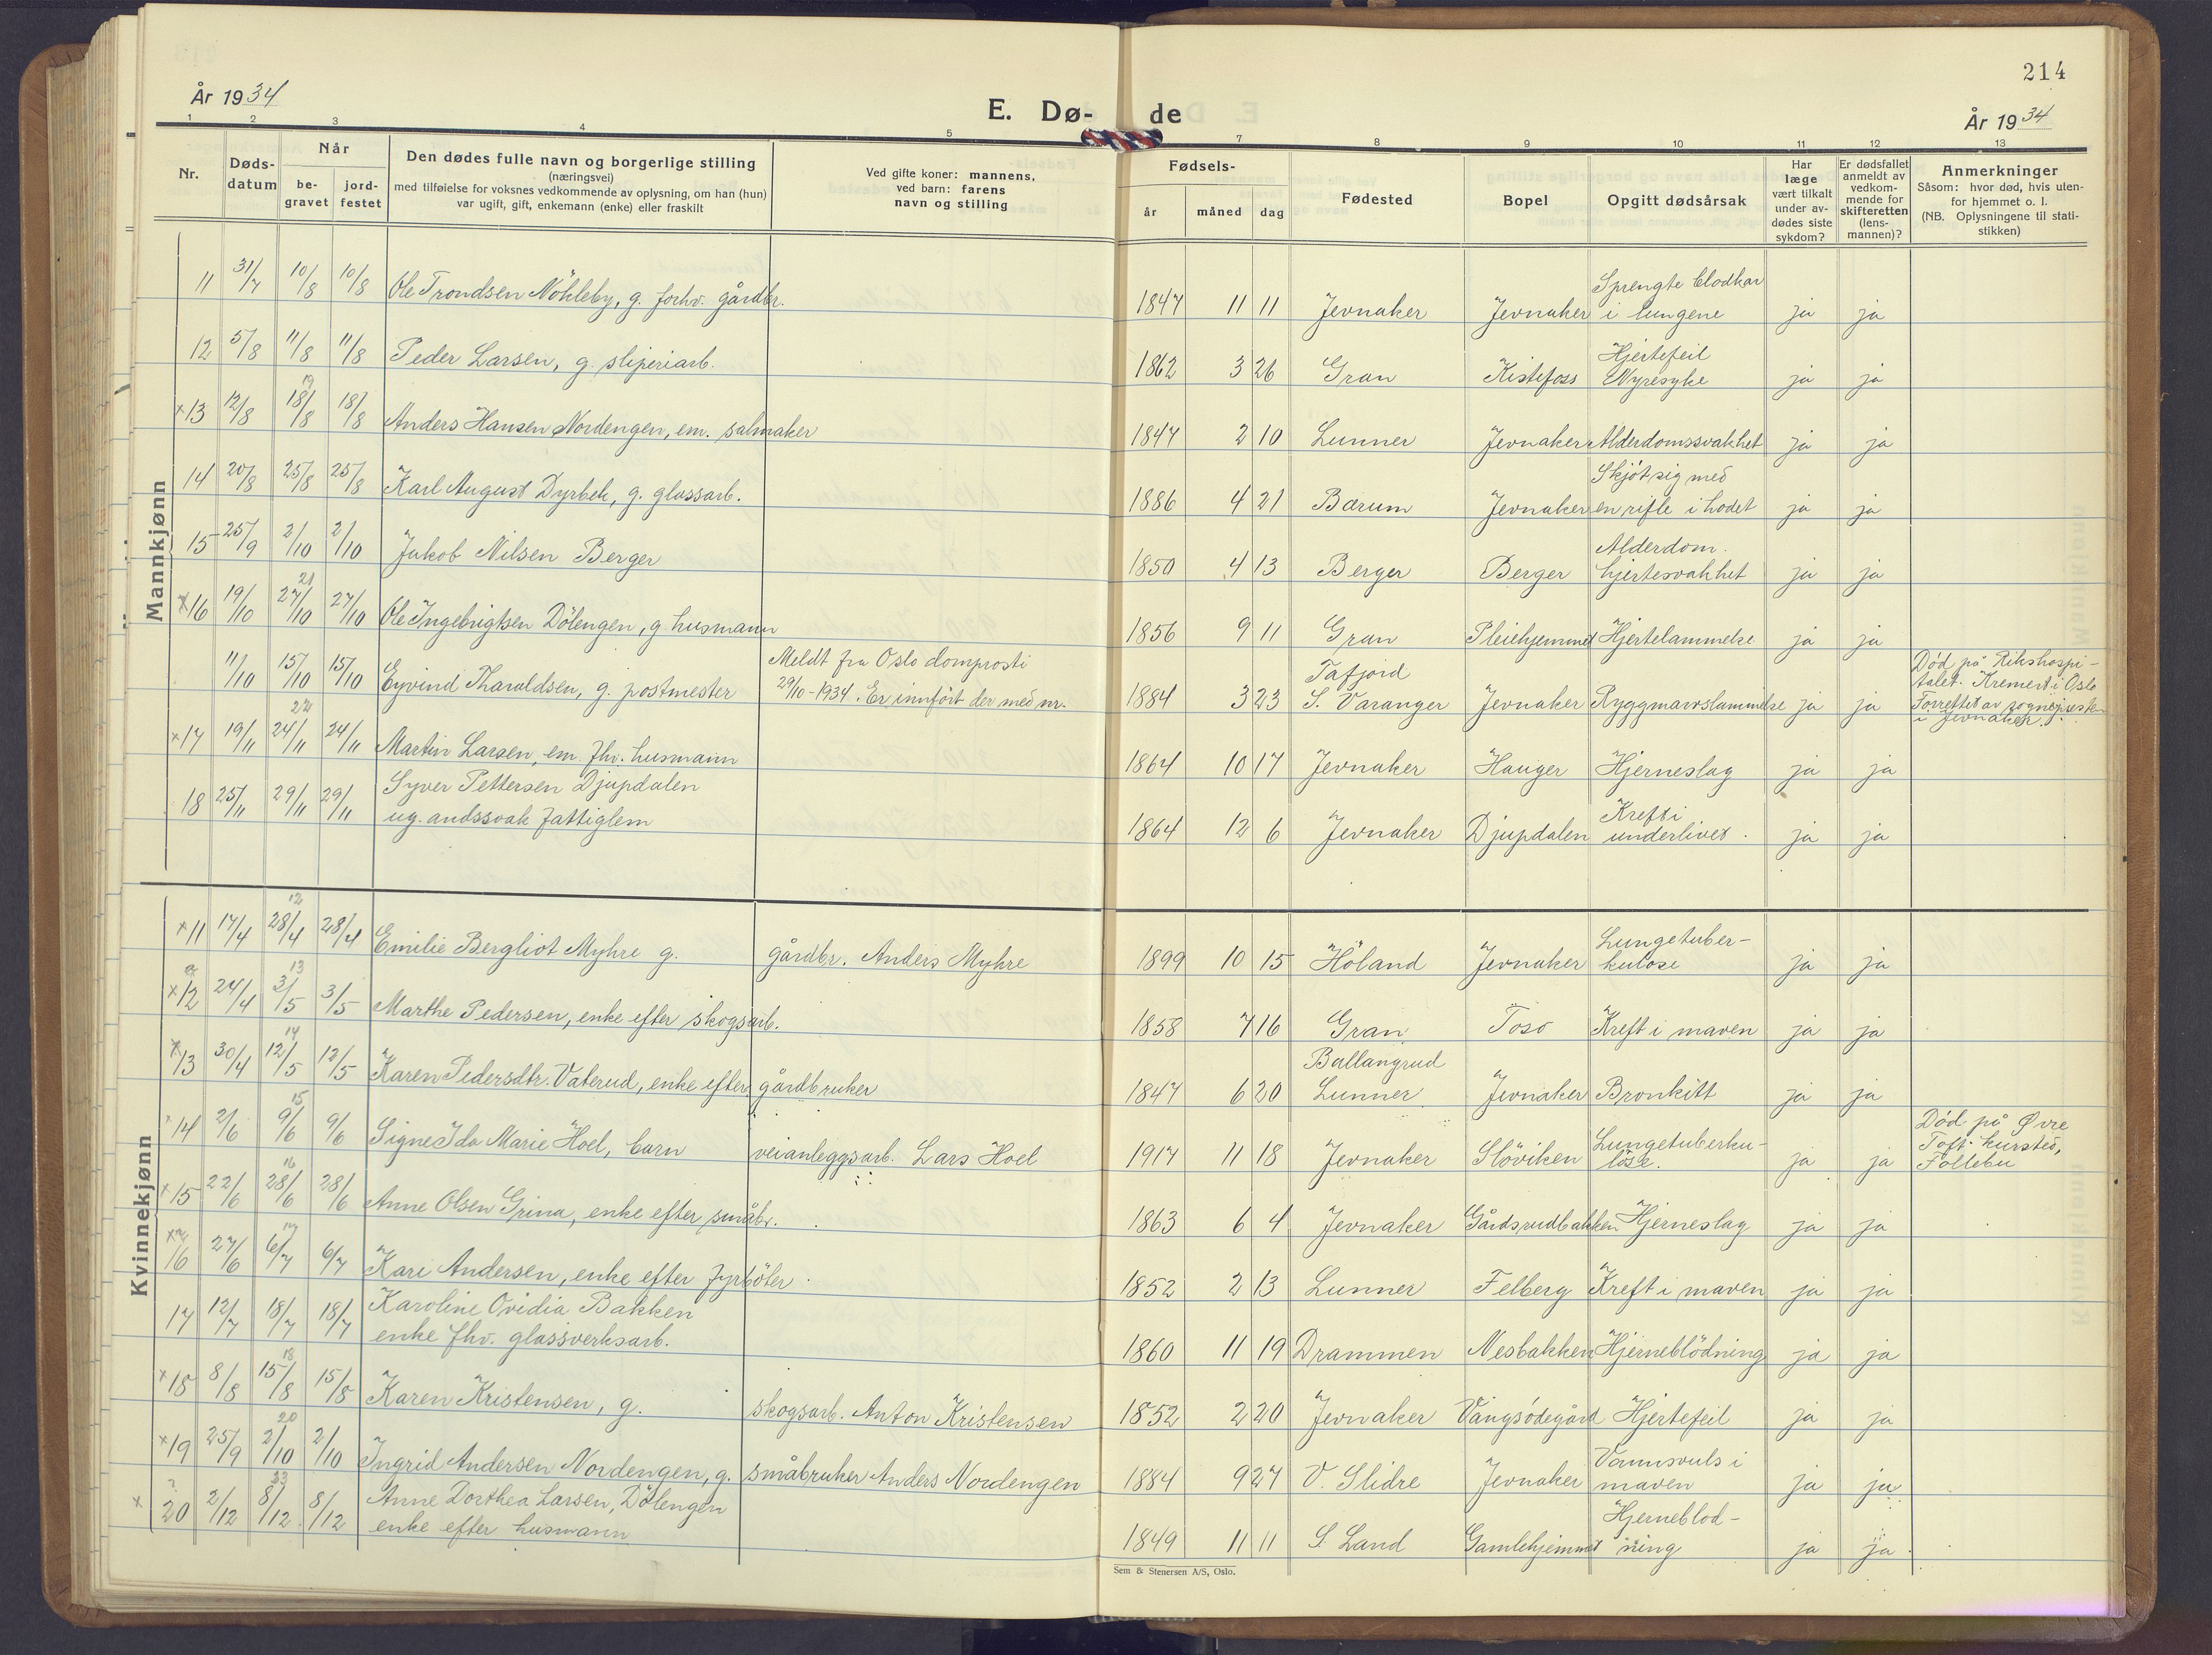 214
År 1934
E. Dø- de
År 1934
1 2 3 4 5 7 8 9 10 11 12 13
Nr.
Døds-
datum
Når
be-
gravet
jord-
festet
Den dødes fulle navn og borgerlige stilling
(næringsvei)
med tilføielse for voksnes vedkommende av oplysning, om han (hun)
var ugift, gift, enkemann (enke) eller fraskilt
Ved gifte koner: mannens,
ved barn: farens
navn og stilling
Fødsels-
år måned dag
Fødested
Bopel
Opgitt dødsårsak
Har
læge
vært tilkalt
under av-
dødes siste
sykdom?
Er dødsfallet
anmeldt av
vedkom-
mende for
skifteretten
(lens-
mannen)?
Anmerkninger
Såsom: hvor død, hvis uten-
for hjemmet o. l.
(NB. Oplysningene til stati-
stikken)
Mannkjønn
Sprengte blodkar
11 31/7 10/8 10/8 Ole Trondsen Nökleby, g. forhv. gårdbr. 1847 11 11 Jevnaker Jevnaker i lungene ja ja
Hjertefeil
12 5/8 11/8 11/8 Peder Larsen, g. sliperiarb. 1862 3 26 Gran Kistefoss Nyresyke ja ja
19
x13 12/8 18/8 18/8 Anders Hansen Nordengen, em. salmaker 1847 2 10 Lunner Jevnaker Alderdomssvakhet ja ja
Skjöt sig med
14 20/8 25/8 25/8 Karl August Dyrbek, g. glassarb. 1886 4 21 Bærum Jevnaker en rifle i hodet ja ja
Alderdom.
15 25/9 2/10 2/10 Jakob Nilsen Berger 1850 4 13 Berger Berger hjertesvakhet ja ja
21
x16 19/10 27/10 27/10 Ole Ingebrigtsen Dölengen, g. husmann 1856 9 11 Gran Pleiehjemmet Hjertelammelse ja ja
Meldt fra Oslo domprosti
Tafjord
Död på Rikshospi-
talet. Kremert i Oslo
11/10 15/10 15/10 Eyvind Tharaldsen, g. postmester 29/10-1934. Er innfört der med nr. 1884 3 23 S. Varanger Jevnaker Ryggmarvslammelse ja ja Forrettet av sognepresten
i Jevnaker.
22
x17 19/11 24/11 24/11 Martin Larsen, em. fhv. husmann 1864 10 17 Jevnaker Hauger Hjerneslag ja ja
Syver Pettersen Djupdalen
Kreft i
18 25/11 29/11 29/11 ug. andssvak fattiglem 1864 12 6 Jevnaker Djupdalen underlivet. ja ja
Kvinnekjønn
12
Lungetuber-
x11 17/4 28/4 28/4 Emilie Bergliot Myhre g. gårdbr. Anders Myhre 1899 10 15 Höland Jevnaker kulose ja ja
13
x12 24/4 3/5 3/5 Marthe Pedersen, enke efter skogsarb. 1858 7 16 Gran Toso Kreft i maven ja ja
14
Ballangrud
x13 30/4 12/5 12/5 Karen Pedersdtr. Vaterud, enke efter gårdbruker 1847 6 20 Lunner Jevnaker Bronkitt ja ja
15
Lungetuberku-
Död på Øvre
Toft kursted,
x14 2/6 9/6 9/6 Signe Ida Marie Hoel, barn veianleggsarb. Lars Hoel 1917 11 18 Jevnaker Slöviken löse. ja ja Follebu
16
x15 22/6 28/6 28/6 Anne Olsen Grina, enke efter småbr. 1863 6 4 Jevnaker Gårdsrudbakken Hjerneslag ja ja
17
x16 27/6 6/7 6/7 Kari Andersen, enke efter fyrböter 1852 2 13 Lunner Felberg Kreft i maven ja ja
Karoline Ovidia Bakken
17 12/7 18/7 18/7 enke fhv. glassverksarb. 1860 11 19 Drammen Nesbakken Hjerneblödning ja ja
18
x18 8/8 15/8 15/8 Karen Kristensen, g. skogsarb. Anton Kristensen 1852 2 20 Jevnaker Vangsödegård Hjertefeil ja ja
20
x19 25/9 2/10 2/10 Ingrid Andersen Nordengen, g. småbruker Anders Nordengen 1884 9 27 V. Slidre Jevnaker maven ja ja
23
Anne Dorthea Larsen, Dölengen
Hjerneblod-
x 20 2/12 8/12 8/12 enke efter husmann 1849 11 11 S. Land Gamlehjemmet ning ja ja
Sem & Stenersen A/S, Oslo.